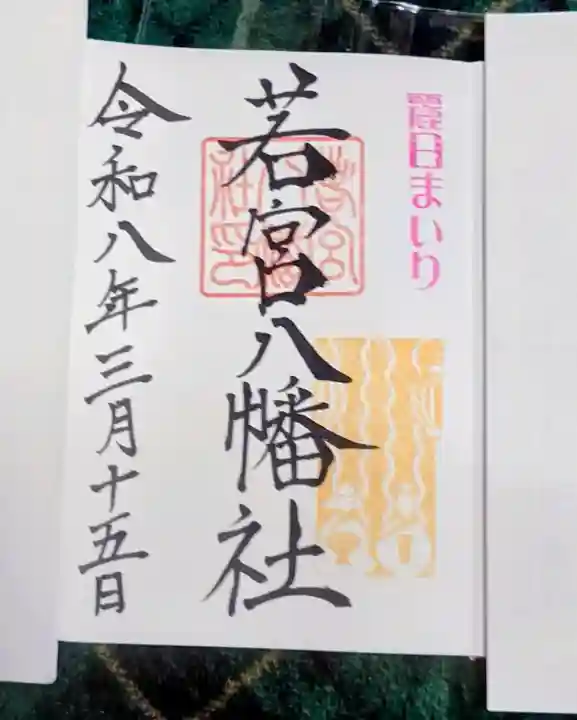 麗日まいり
若宮八幡社
令和八年三月十五日